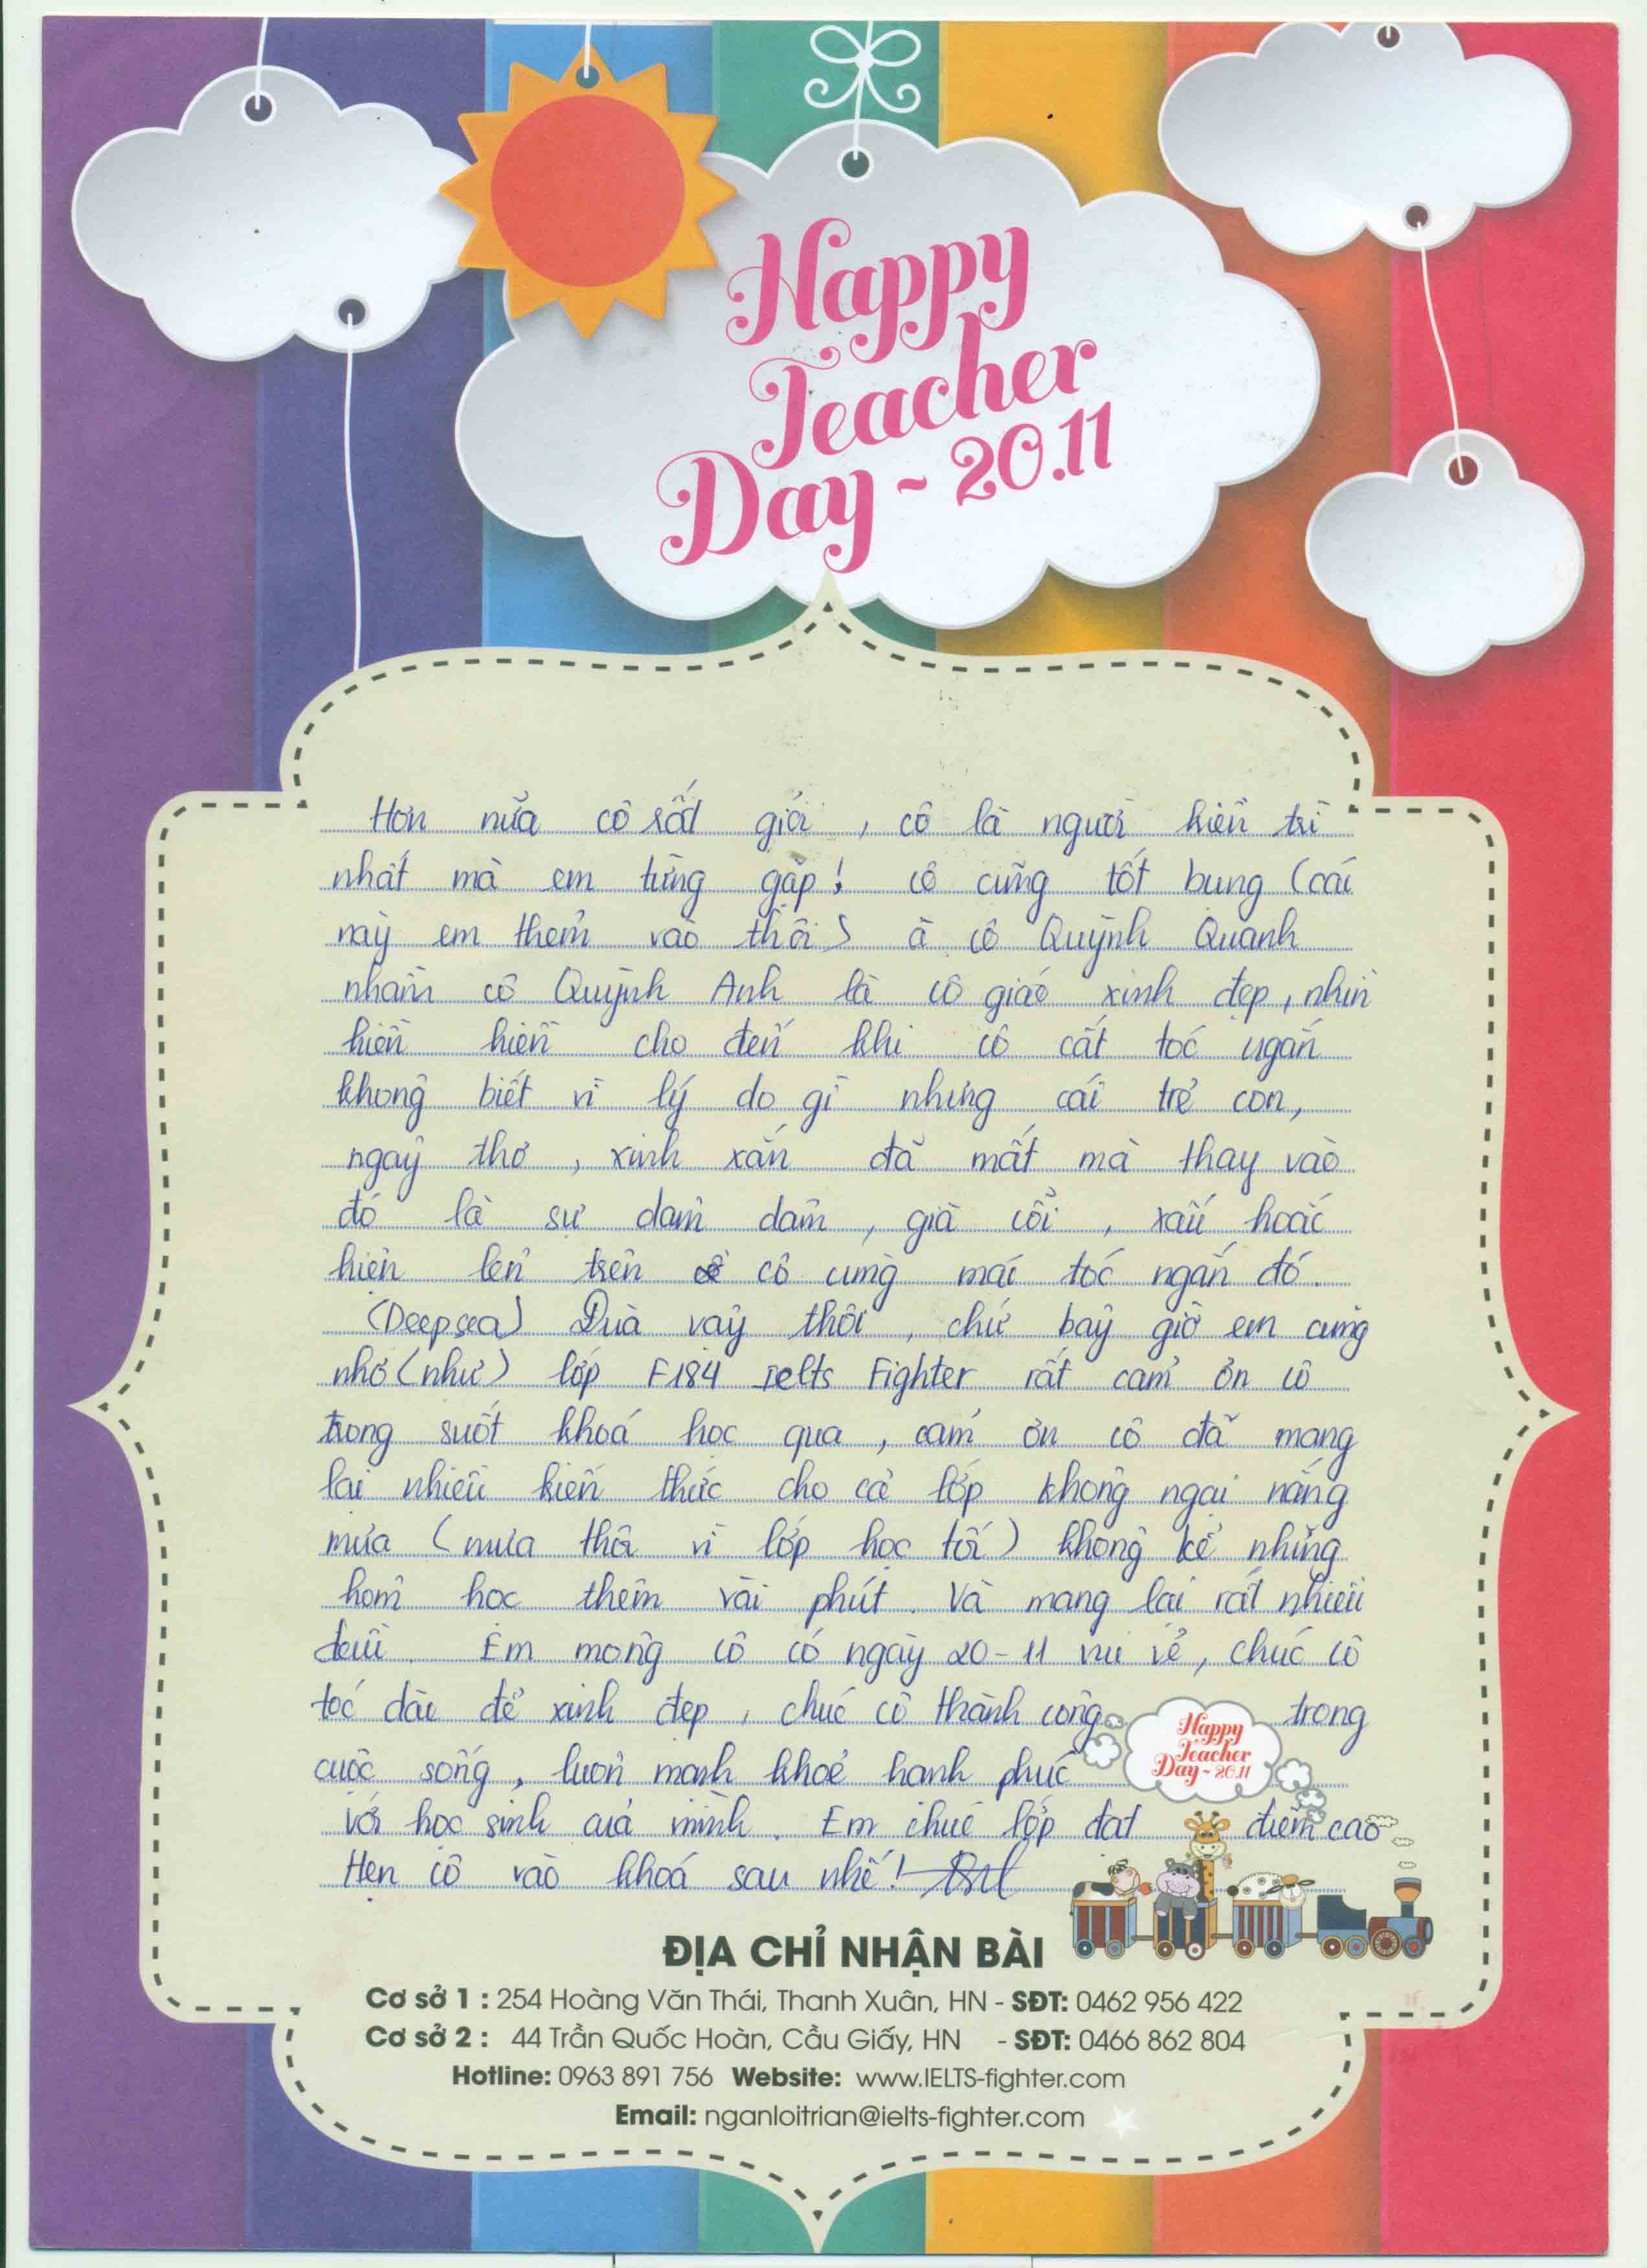 Happy
Teacher
Day - 20.11
Hơn nữa cô rất giỏi, cô là người kiên trì
nhất mà em từng gặp! cô cũng tốt bụng (cái
này em thêm vào thôi) à cô Quỳnh Quanh
nhầm cô Quỳnh Anh là cô giáo xinh đẹp, nhìn
hiền hiền cho đến khi cô cắt tóc ngắn
không biết vì lý do gì nhưng cái trẻ con,
ngây thơ, xinh xắn đã mất mà thay vào
đó là sự dam dam, già cỗi, xấu hoắc
hiện lên trên cô cùng mái tóc ngắn đó.
(Deepsea) Đùa vậy thôi, chứ bây giờ em cũng
nhơ (như) lớp F184 Ielts Fighter rất cảm ơn cô
trong suốt khoá học qua, cảm ơn cô đã mang
lại nhiều kiến thức cho cả lớp không ngại nắng
mưa (mưa thôi vì lớp học tối) không kể những
hôm học thêm vài phút. Và mang lại rất nhiều
Em mong cô có ngày 20-11 vui vẻ, chúc cô
tóc dài để xinh đẹp, chúc cô thành công trong
cuộc sống, luôn mạnh khoẻ hạnh phúc
với học sinh của mình. Em chúc lớp đạt điểm cao
Hẹn cô vào khoá sau nhé!
Happy
Teacher
Day - 20.11
ĐỊA CHỈ NHẬN BÀI
Cơ sở 1 : 254 Hoàng Văn Thái, Thanh Xuân, HN - SĐT: 0462 956 422
Cơ sở 2 : 44 Trần Quốc Hoàn, Cầu Giấy, HN - SĐT: 0466 862 804
Hotline: 0963 891 756 Website: www.IELTS-fighter.com
Email: nganloitrian@ielts-fighter.com